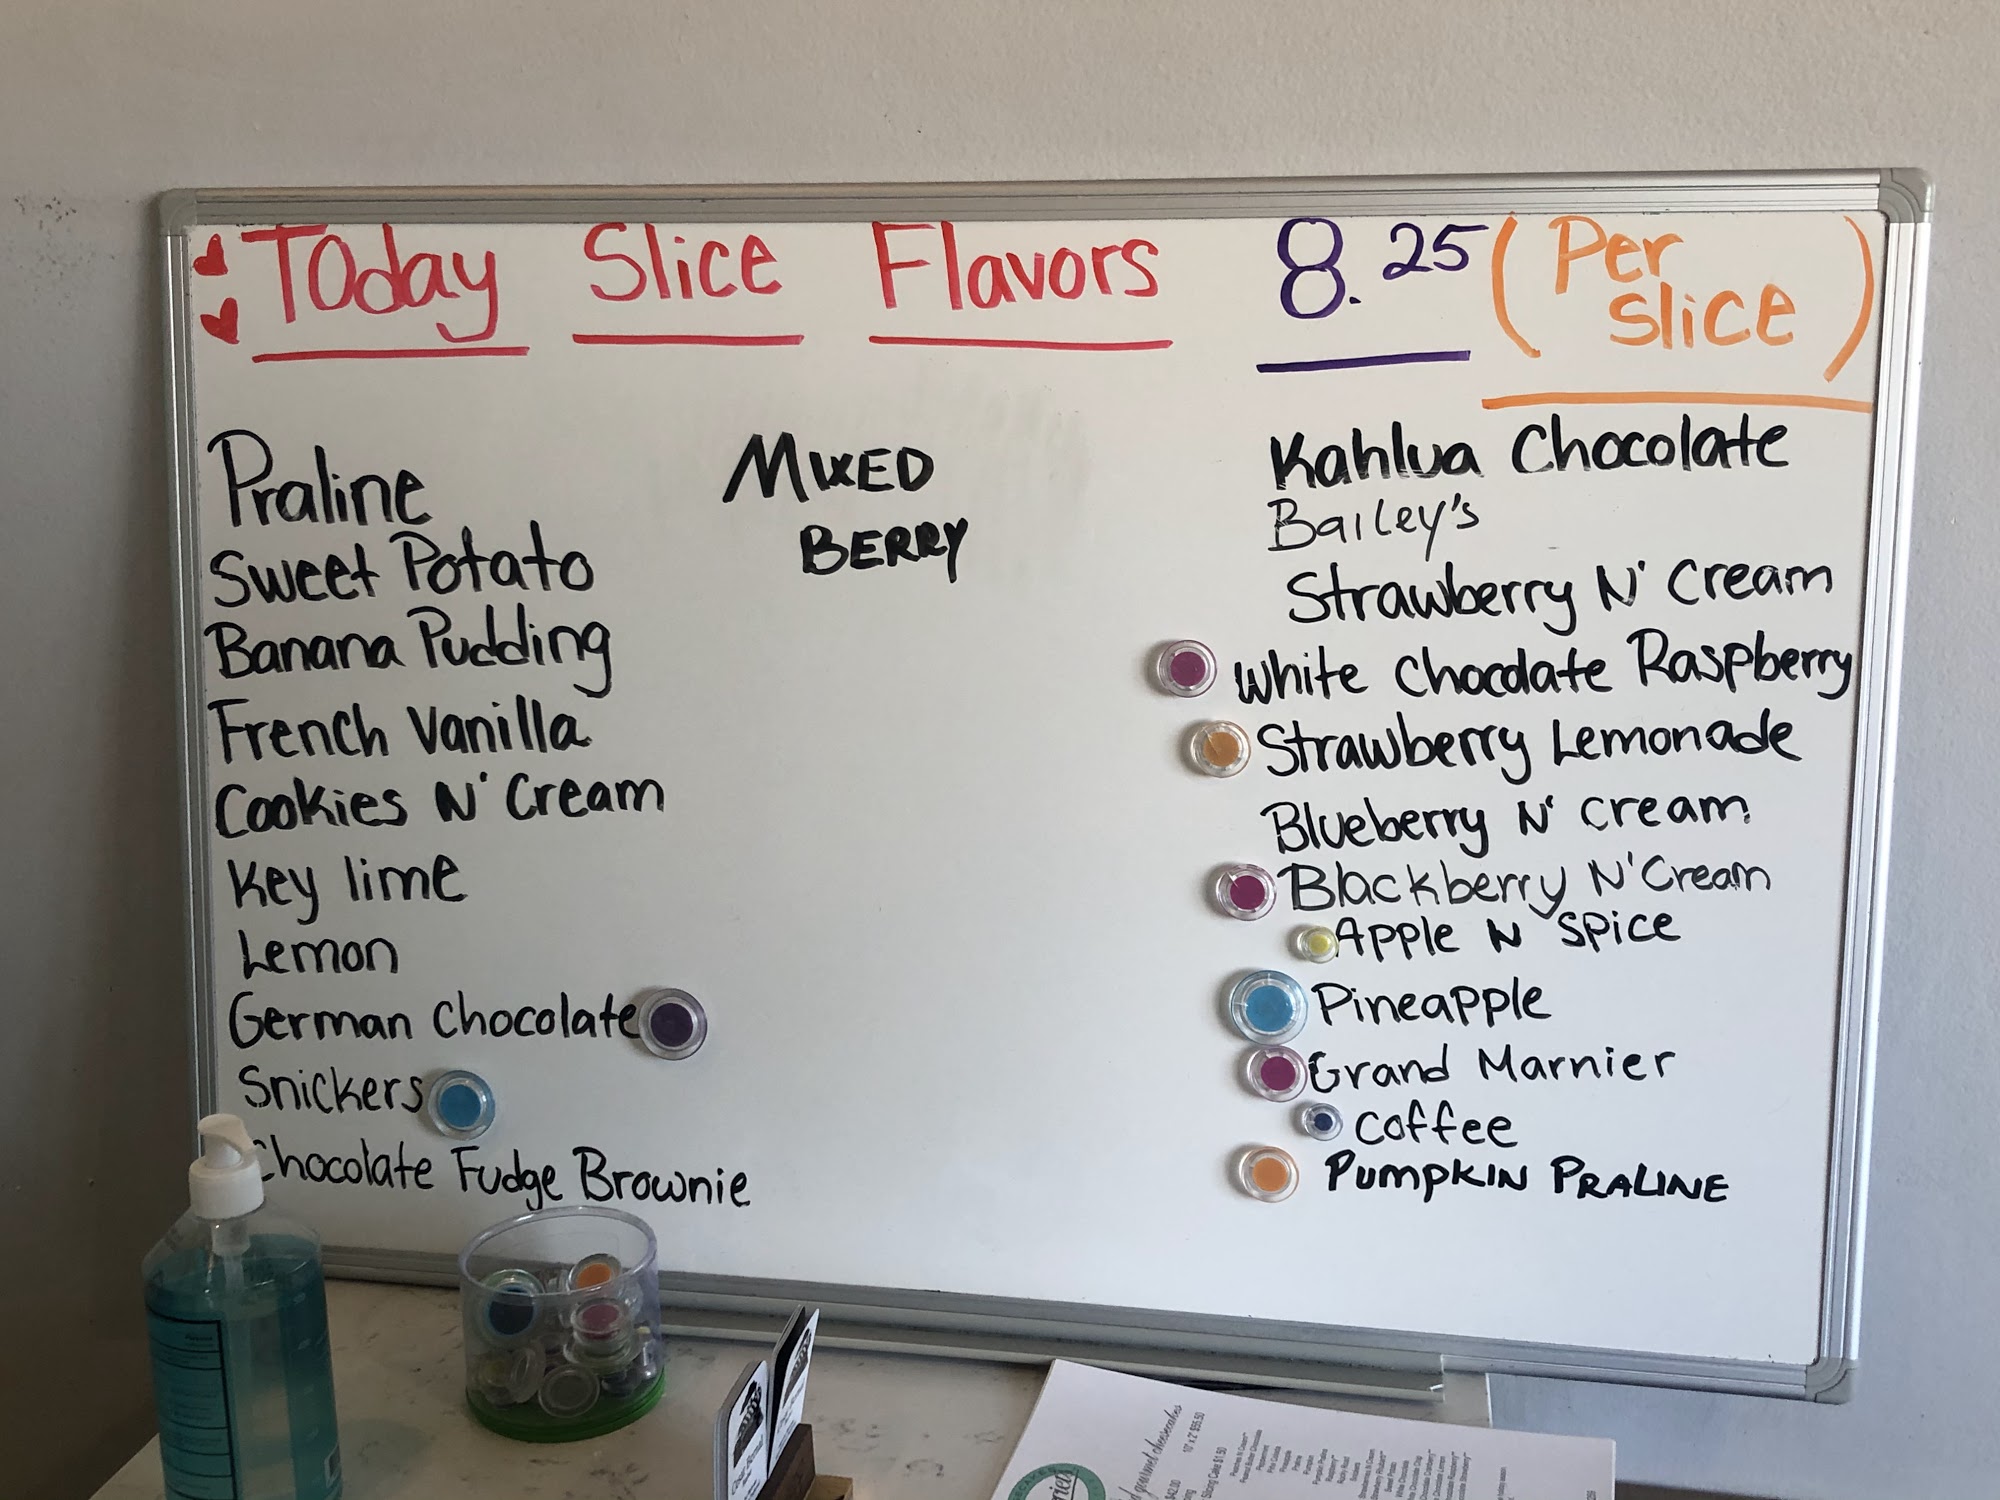 Today Slice Flavors 8.25 (Per slice)
Praline
Sweet Potato
Banana Pudding
French Vanilla
Cookies N' Cream
Key lime
Lemon
German Chocolate
Snickers
Chocolate Fudge Brownie
MIXED
BERRY
Kahlua Chocolate
Bailey's
Strawberry N' Cream
White Chocolate Raspberry
Strawberry Lemonade
Blueberry N' Cream
Blackberry N' Cream
Apple N Spice
Pineapple
Grand Marnier
Coffee
PUMPKIN PRALINE
gourmet cheesecakes